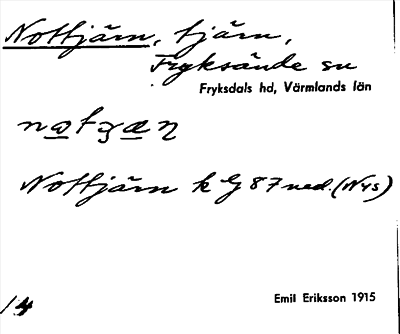 Nottjärn, tjärn,
Fryksände sn
Fryksdals hd, Värmlands län
Nottjärn k G 87 ned. (Nys)
Emil Eriksson 1915
14